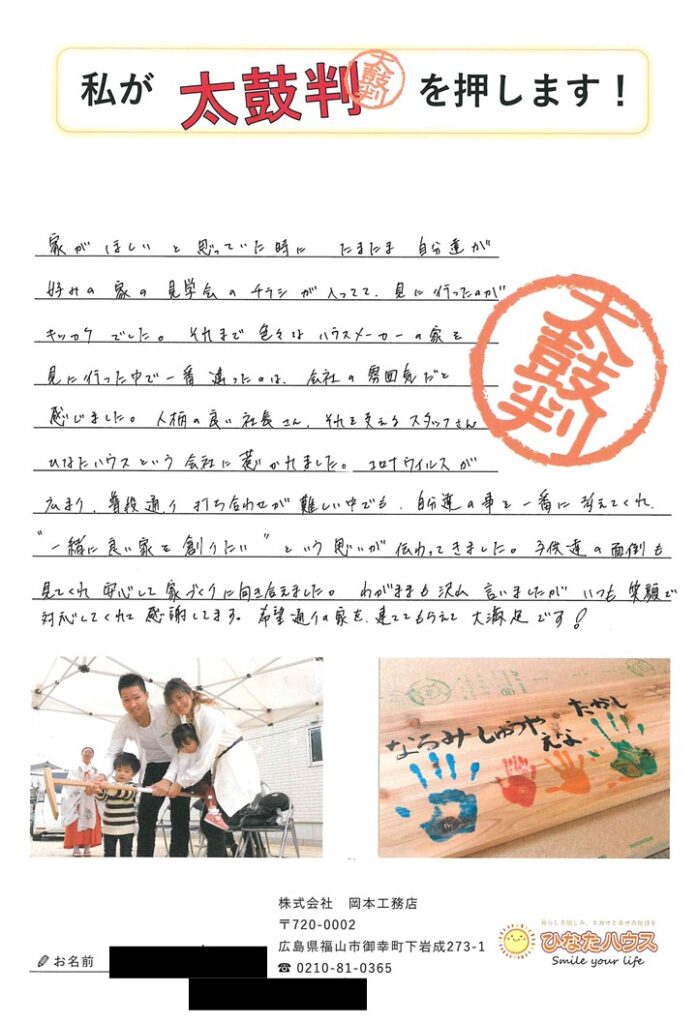 私が 太鼓判 太鼓判 を押します！
家がほしいと思っていた時に たまたま 自分達が
好みの家の見学会のチラシが入ってて、見に行ったのが
キッカケでした。それまで色々なハウスメーカーの家を
見に行った中で一番違ったのは、会社の雰囲気だと
感じました。人柄の良い社長さん、それを支えるスタッフさん
ひなたハウスという会社に惹かれました。コロナウイルスが
広まり、普段通り打ち合わせが難しい中でも、自分達の事を一番に考えてくれ、
"一緒に良い家を創りたい"という思いが伝わってきました。子供達の面倒も
見てくれ安心して家づくりに向き合えました。わがままも沢山言いましたがいつも笑顔で
対応してくれて感謝してます。希望通りの家を建ててもらえて大満足です！
太鼓判
なるみ しゅうや えな たかし
株式会社 岡本工務店
〒720-0002
広島県福山市御幸町下岩成273-1
☎ 0210-81-0365
お名前
暮らしを愉しみ、エガオと幸せの毎日を
ひなたハウス
Smile your life